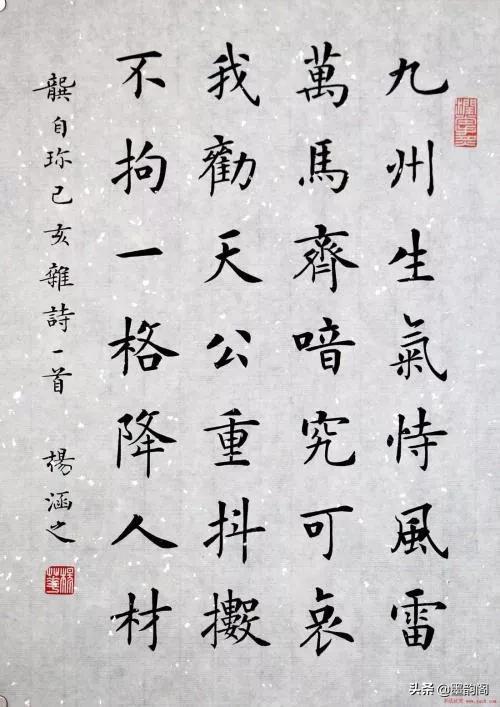 九州生氣恃風雷
萬馬齊喑究可哀
我勸天公重抖擻
不拘一格降人材
龔自珍己亥雜詩一首 楊涵之
头条 @墨韵阁